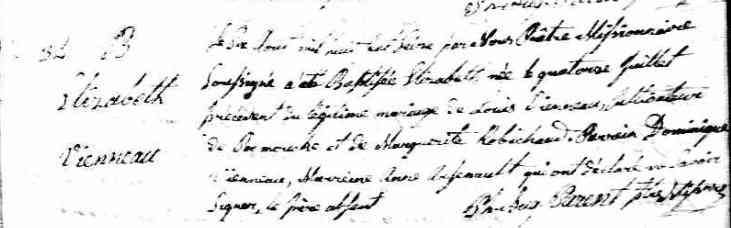 32 B
Elizabeth
Vienneau
Le Six Aout mil huit cent Seize par Nous Prêtre Missionnaire
Soussigné a été Baptisée Elizabeth née le quatorze Juillet
précédent du légitime mariage de Louis Vienneau, Cultivateur
de Pocmouche et de Marguerite Robichaud. Parrain Dominique
Vienneau, Marreine Anne Arsenault qui ont déclaré ne Savoir
Signer, le père absent
Parent ptre Miss